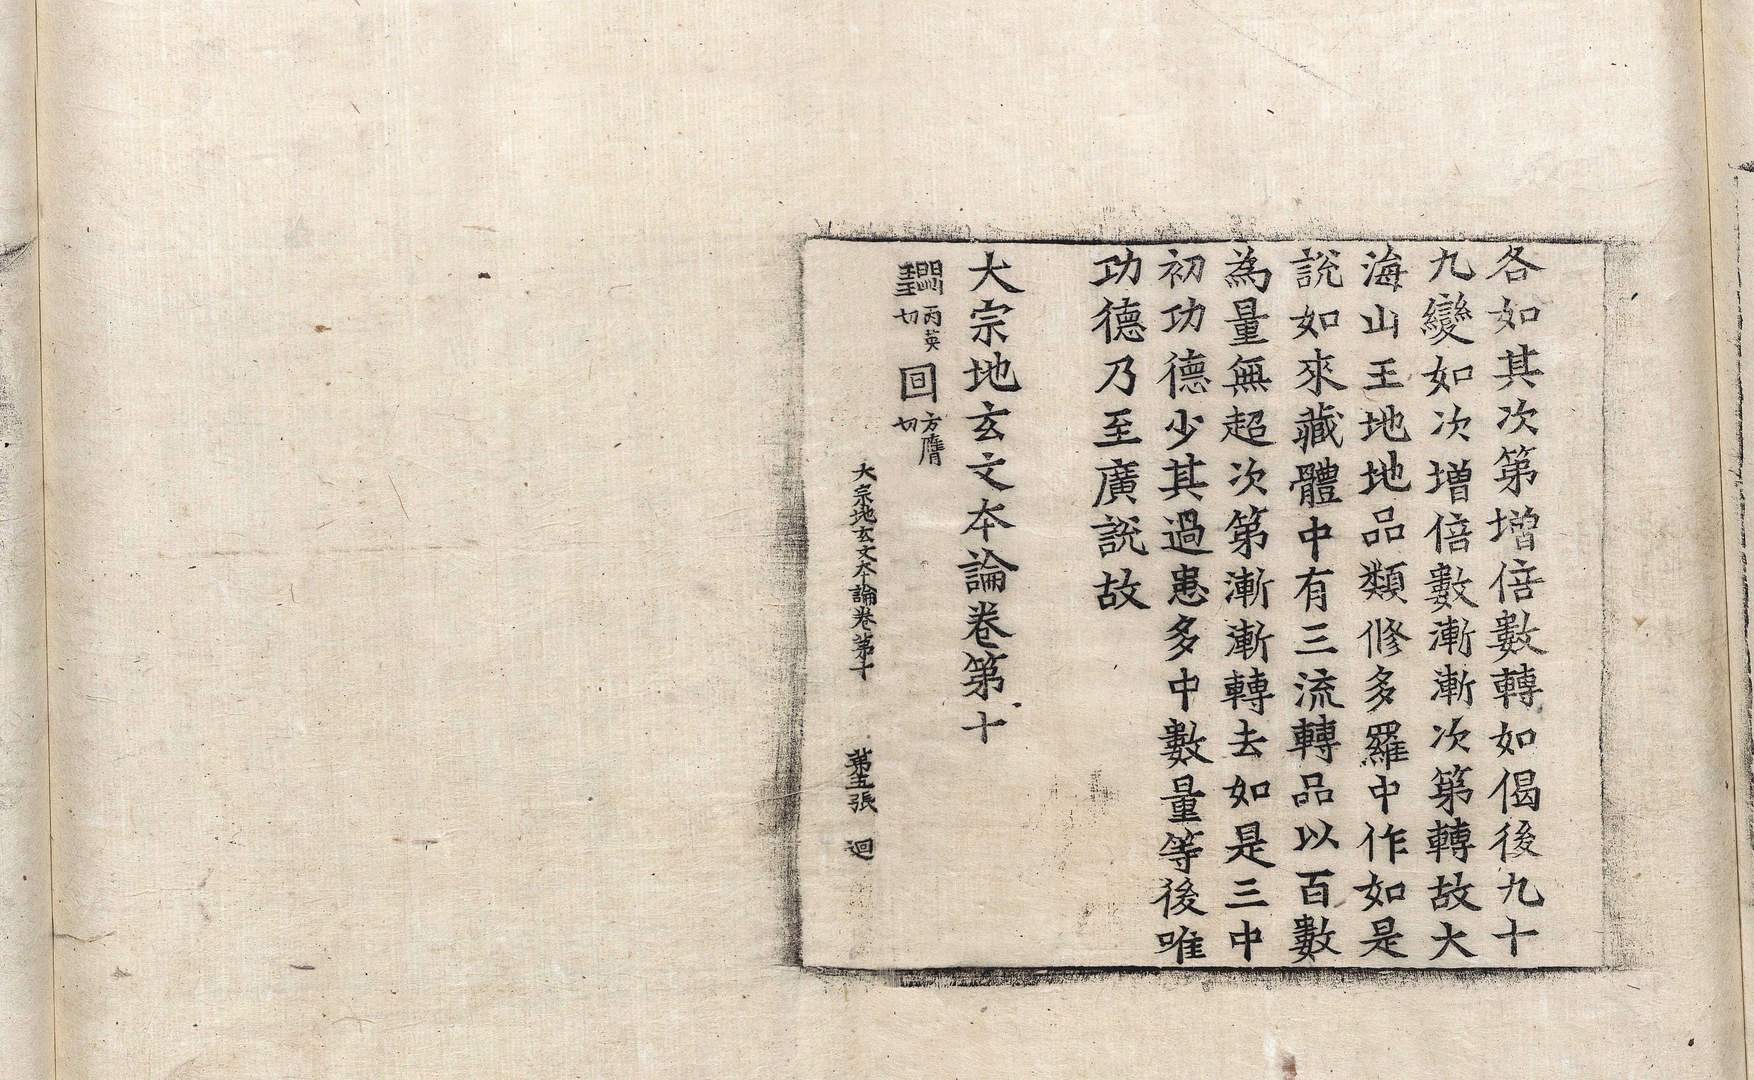 各如其次第增倍數轉如偈後九十
九變如次增倍數漸漸次第轉故大
海山王地地品類修多羅中作如是
說如來藏體中有三流轉品以百數
為量無超次第漸漸轉去如是三中
初功德少其過患多中數量等後唯
功德乃至廣說故
大宗地玄文本論卷第十
丙英切 囬 方膺切
大宗地玄文本論卷第十 第五張 迴